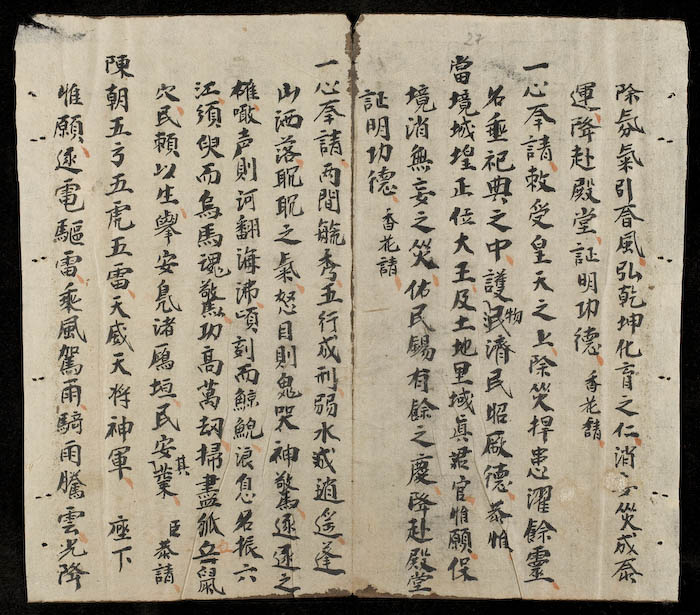 27
除氛氣引春風弘乾坤化育之仁消災成泰
運降赴殿堂証明功德 香花請
一心奉請敕受皇天之上除災捍患濯餘靈
名垂祀典之中護物民濟民昭厥德恭惟
當境城埕正位大王及土地里域真君官惟願保
境消無妄之災佑民錫有餘之慶降赴殿堂
証明功德 香花請
一心奉請両間毓秀五行成刑弱水或逍遥蓬
山洒落眈眈之氣怒目則鬼哭神驚逐逐之
雄噉声則河翻海沸頃刻而鯨鯢浪息名振六
江須臾而烏馬魂驚功高萬刼掃盡狐鼠
穴民賴以生舉安鳬渚鴈垣民安其業 臣恭請
陳朝五方五虎五雷天威天將神軍 座下
惟願逐電驅雷乘風駕雨騎雨騰雲光降